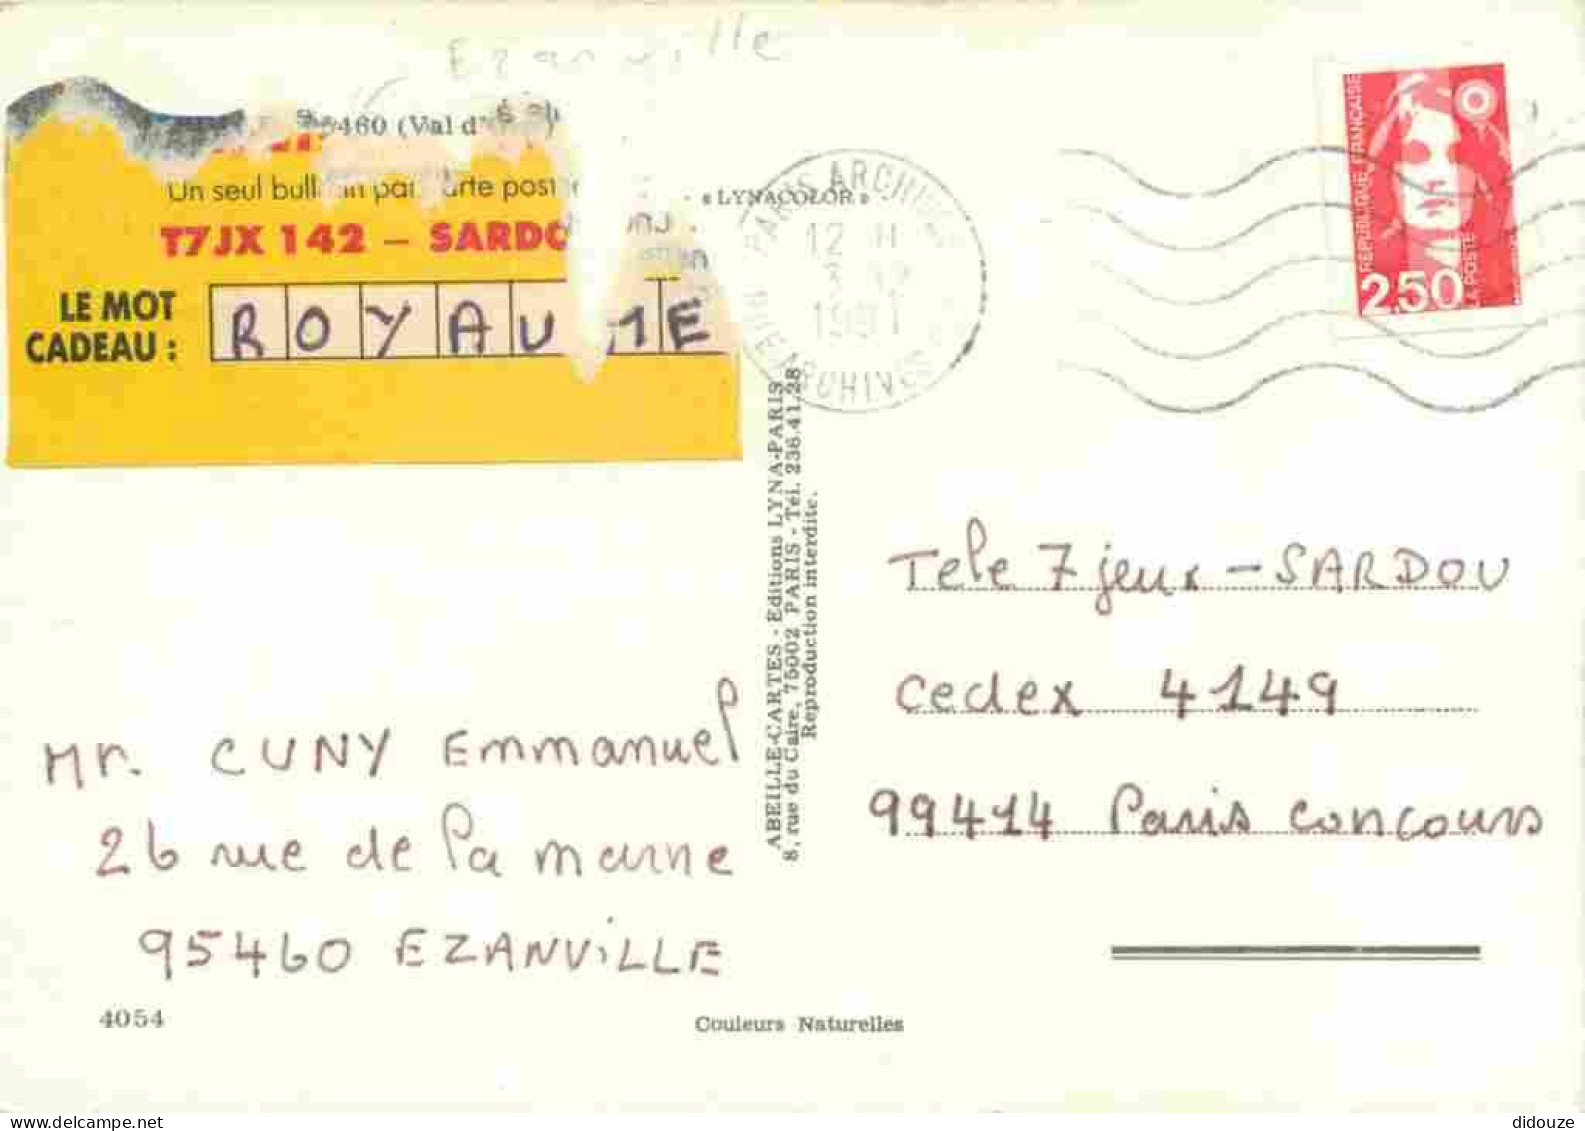 Ezanville
95460 (Val d'
Un seul bulletin par carte post
« LYNACOLOR »
T7JX 142 – SARDO
LE MOT
CADEAU :
ROYAUME
PARIS ARCHIVES
12 H
1991
RUE ARCHIVES
RÉPUBLIQUE FRANÇAISE
2,50
LA POSTE
ABEILLE-CARTES - Editions LYNA-PARIS
8, rue du Caire, 75002 PARIS - Tél. 236.41.28
Reproduction interdite.
Tele 7 jeux - SARDOU
cedex 4149
99414 Paris concours
Mr. CUNY Emmanuel
26 rue de la marne
95460 EZANViLLE
4054
Couleurs Naturelles
didouze